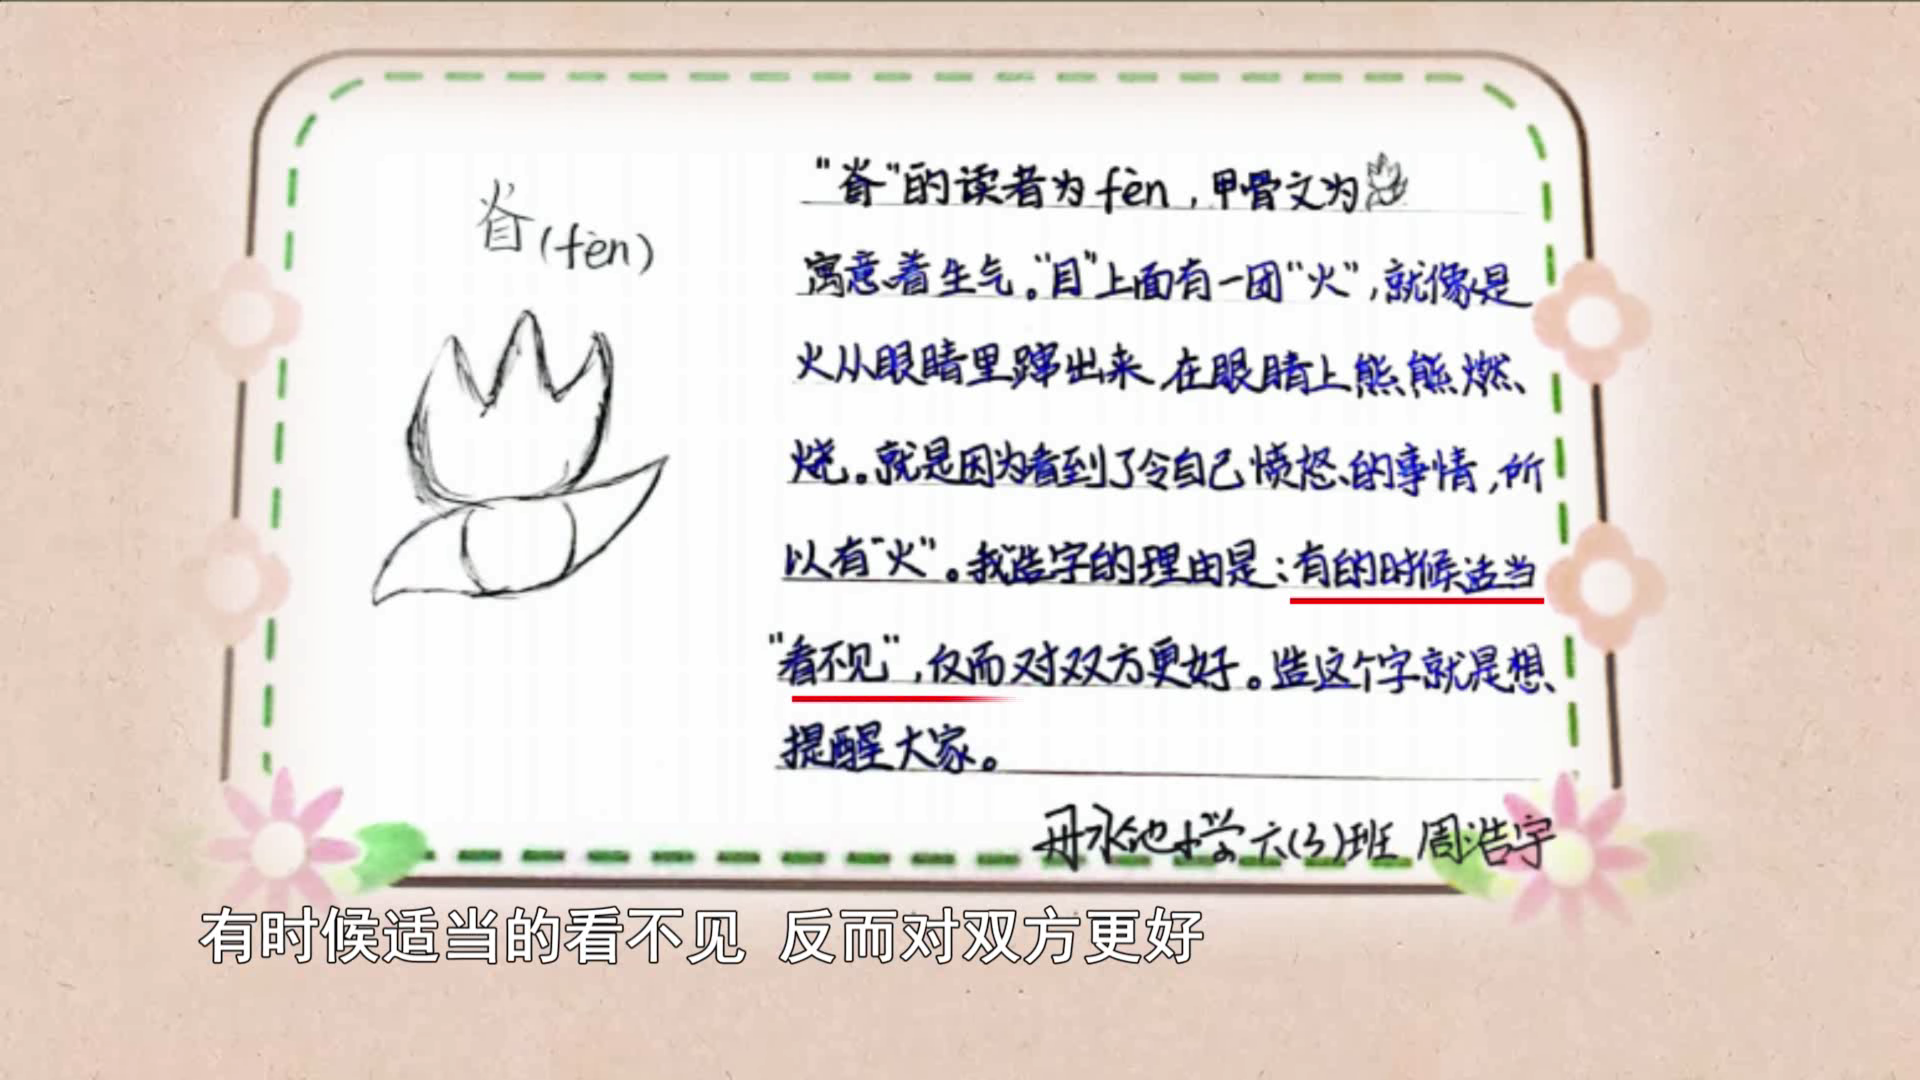 (fèn)
“”的读者为fèn，甲骨文为
寓意着生气。“目”上面有一团“火”，就像是
火从眼睛里蹿出来，在眼睛上熊熊燃
烧。就是因为看到了令自己愤怒的事情，所
以有“火”。我造字的理由是：有的时候适当
“看不见”，仅而对双方更好。造这个字就是想
提醒大家。
丹水池小学六(3)班 周浩宇
有时候适当的看不见 反而对双方更好